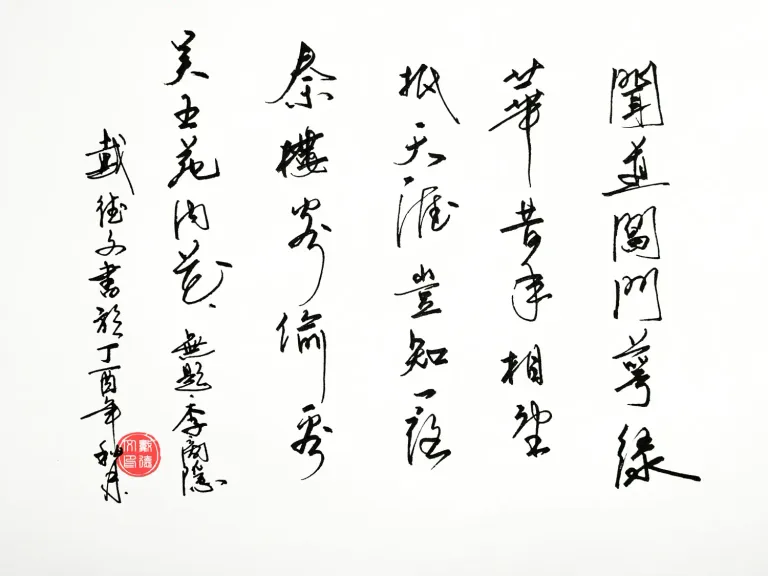 聞道閶門萼綠
華昔年相望
抵天涯豈知一夜
秦樓客偷看
吳王苑內花 無題李商隱
戴德文書於丁酉年秋月
戴德文印